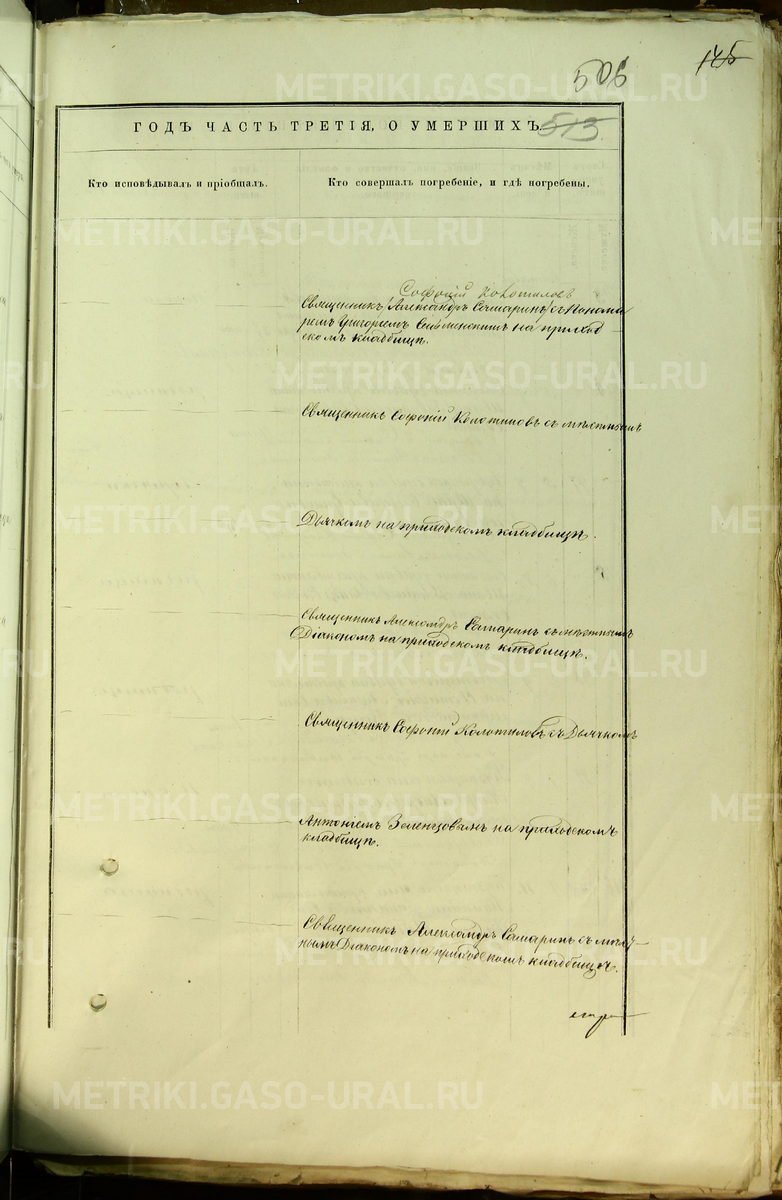 506
145
ГОДЪ ЧАСТЬ ТРЕТІЯ, О УМЕРШИХЪ.
513
Кто исповѣдывалъ и пріобщалъ.
Кто совершалъ погребеніе, и гдѣ погребены.
Софоній Колотиловъ
Священникъ /Александръ Самаринъ/ съ Понома
ремъ Григоріемъ на приход
скомъ кладбищѣ.
Священникъ Софоній Колотиловъ съ мѣстнымъ
Дьячкомъ на приходскомъ кладбищѣ.
Священникъ Александръ Самаринъ съ мѣстнымъ
Діакономъ на приходскомъ кладбищѣ.
Священникъ Софоній Колотиловъ съ Дьячкомъ
Зеленцовымъ на приходскомъ
кладбищѣ.
Священникъ Александръ Самаринъ съ мѣст-
нымъ Діакономъ на приходскомъ кладбищѣ.
METRIKI.GASO-URAL.RU